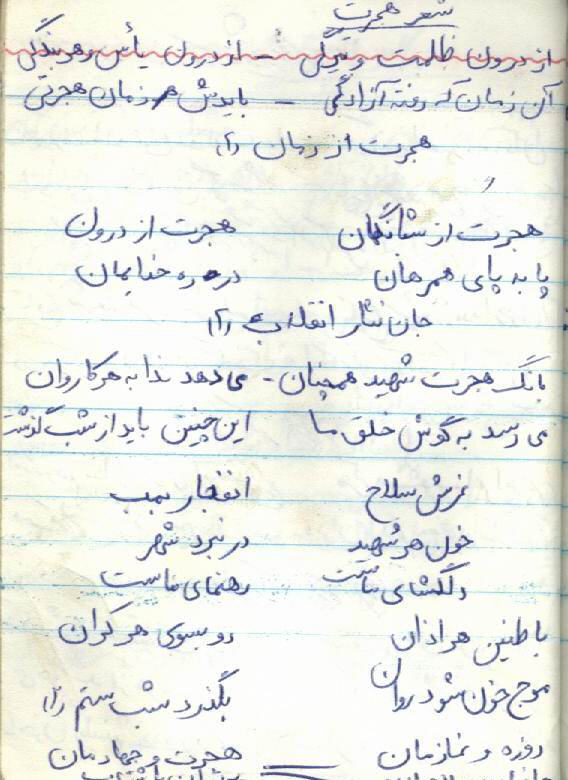 شعر هجرت
از درون ظلمت و بیرگی - از درون یأس و هر بندگی
آن زمان که رفته آزادگی - بایدش هر زمان هجرتی
هجرت از زمان (۲)
هجرت از شبانگهان هجرت از درون
پا به پای همرهان در ره خدایمان
جان نثار انقلاب (۲)
بانگ هجرت شهید همچنان - می دهد ندا به هر کاروان
می رسد به گوش خلق ما این چنین باید از شب گذشت
غرش سلاح انفجار بمب
خون هر شهید در نبرد شهر
دلگشای ماست رهنمای ماست
با طنین هر اذان رو بسوی هر کران
موج خون شود روان بگذرد شب ستم (۲)
روزه و نمازمان هجرت و جهادمان